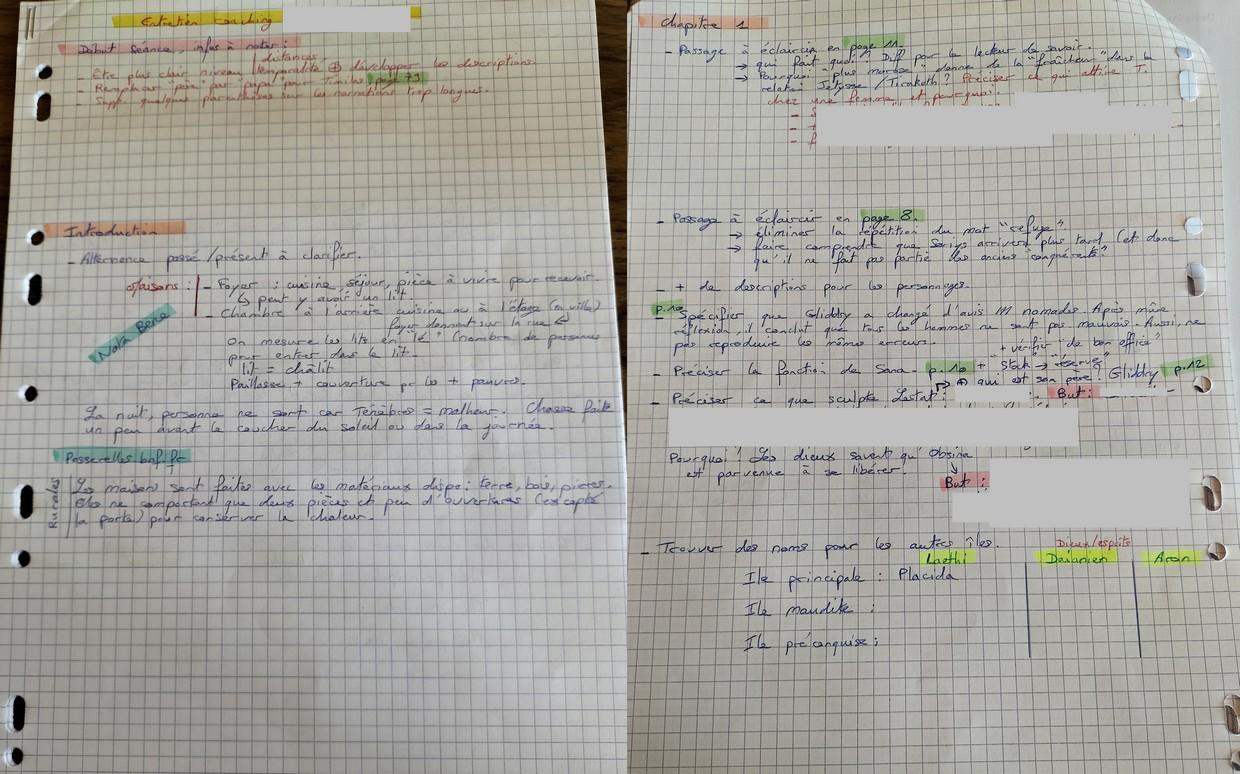 Entretien coaching
Début séance, infos à noter :
- Être plus clair niveau distances temporalité ⊕ développer les descriptions.
- Remplacer "père" par "papa" pour Timilas page 79
- Supp. quelques parenthèses sur les narrations trop longues.
Introduction
- Alternance passé/présent à clarifier.
Maisons : - Foyer : cuisine, séjour, pièce à vivre pour recevoir.
↳ peut y avoir un lit
- Chambre à l'arrière cuisine ou à l'étage (en ville)
foyer donnant sur la rue
Nota Bene
On mesure les lits en "lé" (nombre de personnes
pour entrer dans le lit.
lit = châlit
Paillasse + couverture pr les + pauvres.
La nuit, personne ne sort car Ténèbres = malheur. Chasse faite
un peu avant le coucher du soleil ou dans la journée.
Passerelles bnf.fr
Rurales
Les maisons sont faites avec les matériaux dispo : terre, bois, pierres.
Elles ne comportent que deux pièces et peu d'ouvertures (excepté
la porte) pour conserver la chaleur.
Chapitre 1
- Passage à éclaircir en page 11
→ qui fait quoi ? Diff pour le lecteur de savoir.
→ Pourquoi "plus mordse" donne de la "fraîcheur" dans la
relation / Tirakoth ? Préciser ce qui attire T.
chez une femme, et pourquoi.
- Passage à éclaircir en page 8.
→ éliminer la répétition du mot "refuge"
→ faire comprendre que Sorys arrivera plus tard (et donc
qu'il ne fait pas partie des anciens "conquérents"
- + de descriptions pour les personnages.
p.10
- Spécifier que Gliddry a changé d'avis nomades. Après mûre
réflexion, il conclut que tous les hommes ne sont pas mauvais. Aussi, ne
pas reproduire les même erreurs.
+ vérifier "de bon office"
- Préciser la fonction de Sana. p.10 + "Stock" → "réserve"
→ ⊕ qui est son père ? Gliddry p.12
- Préciser ce que sculpte Lastat : But :
Pourquoi ? Les dieux savent qu'Obsina
est parvenue à se libérer.
But :
- Trouver des noms pour les autres îles.
Dieux/esprits
Laethi Deianien Aron
Ile principale : Placida
Ile maudite :
Ile préconquise :